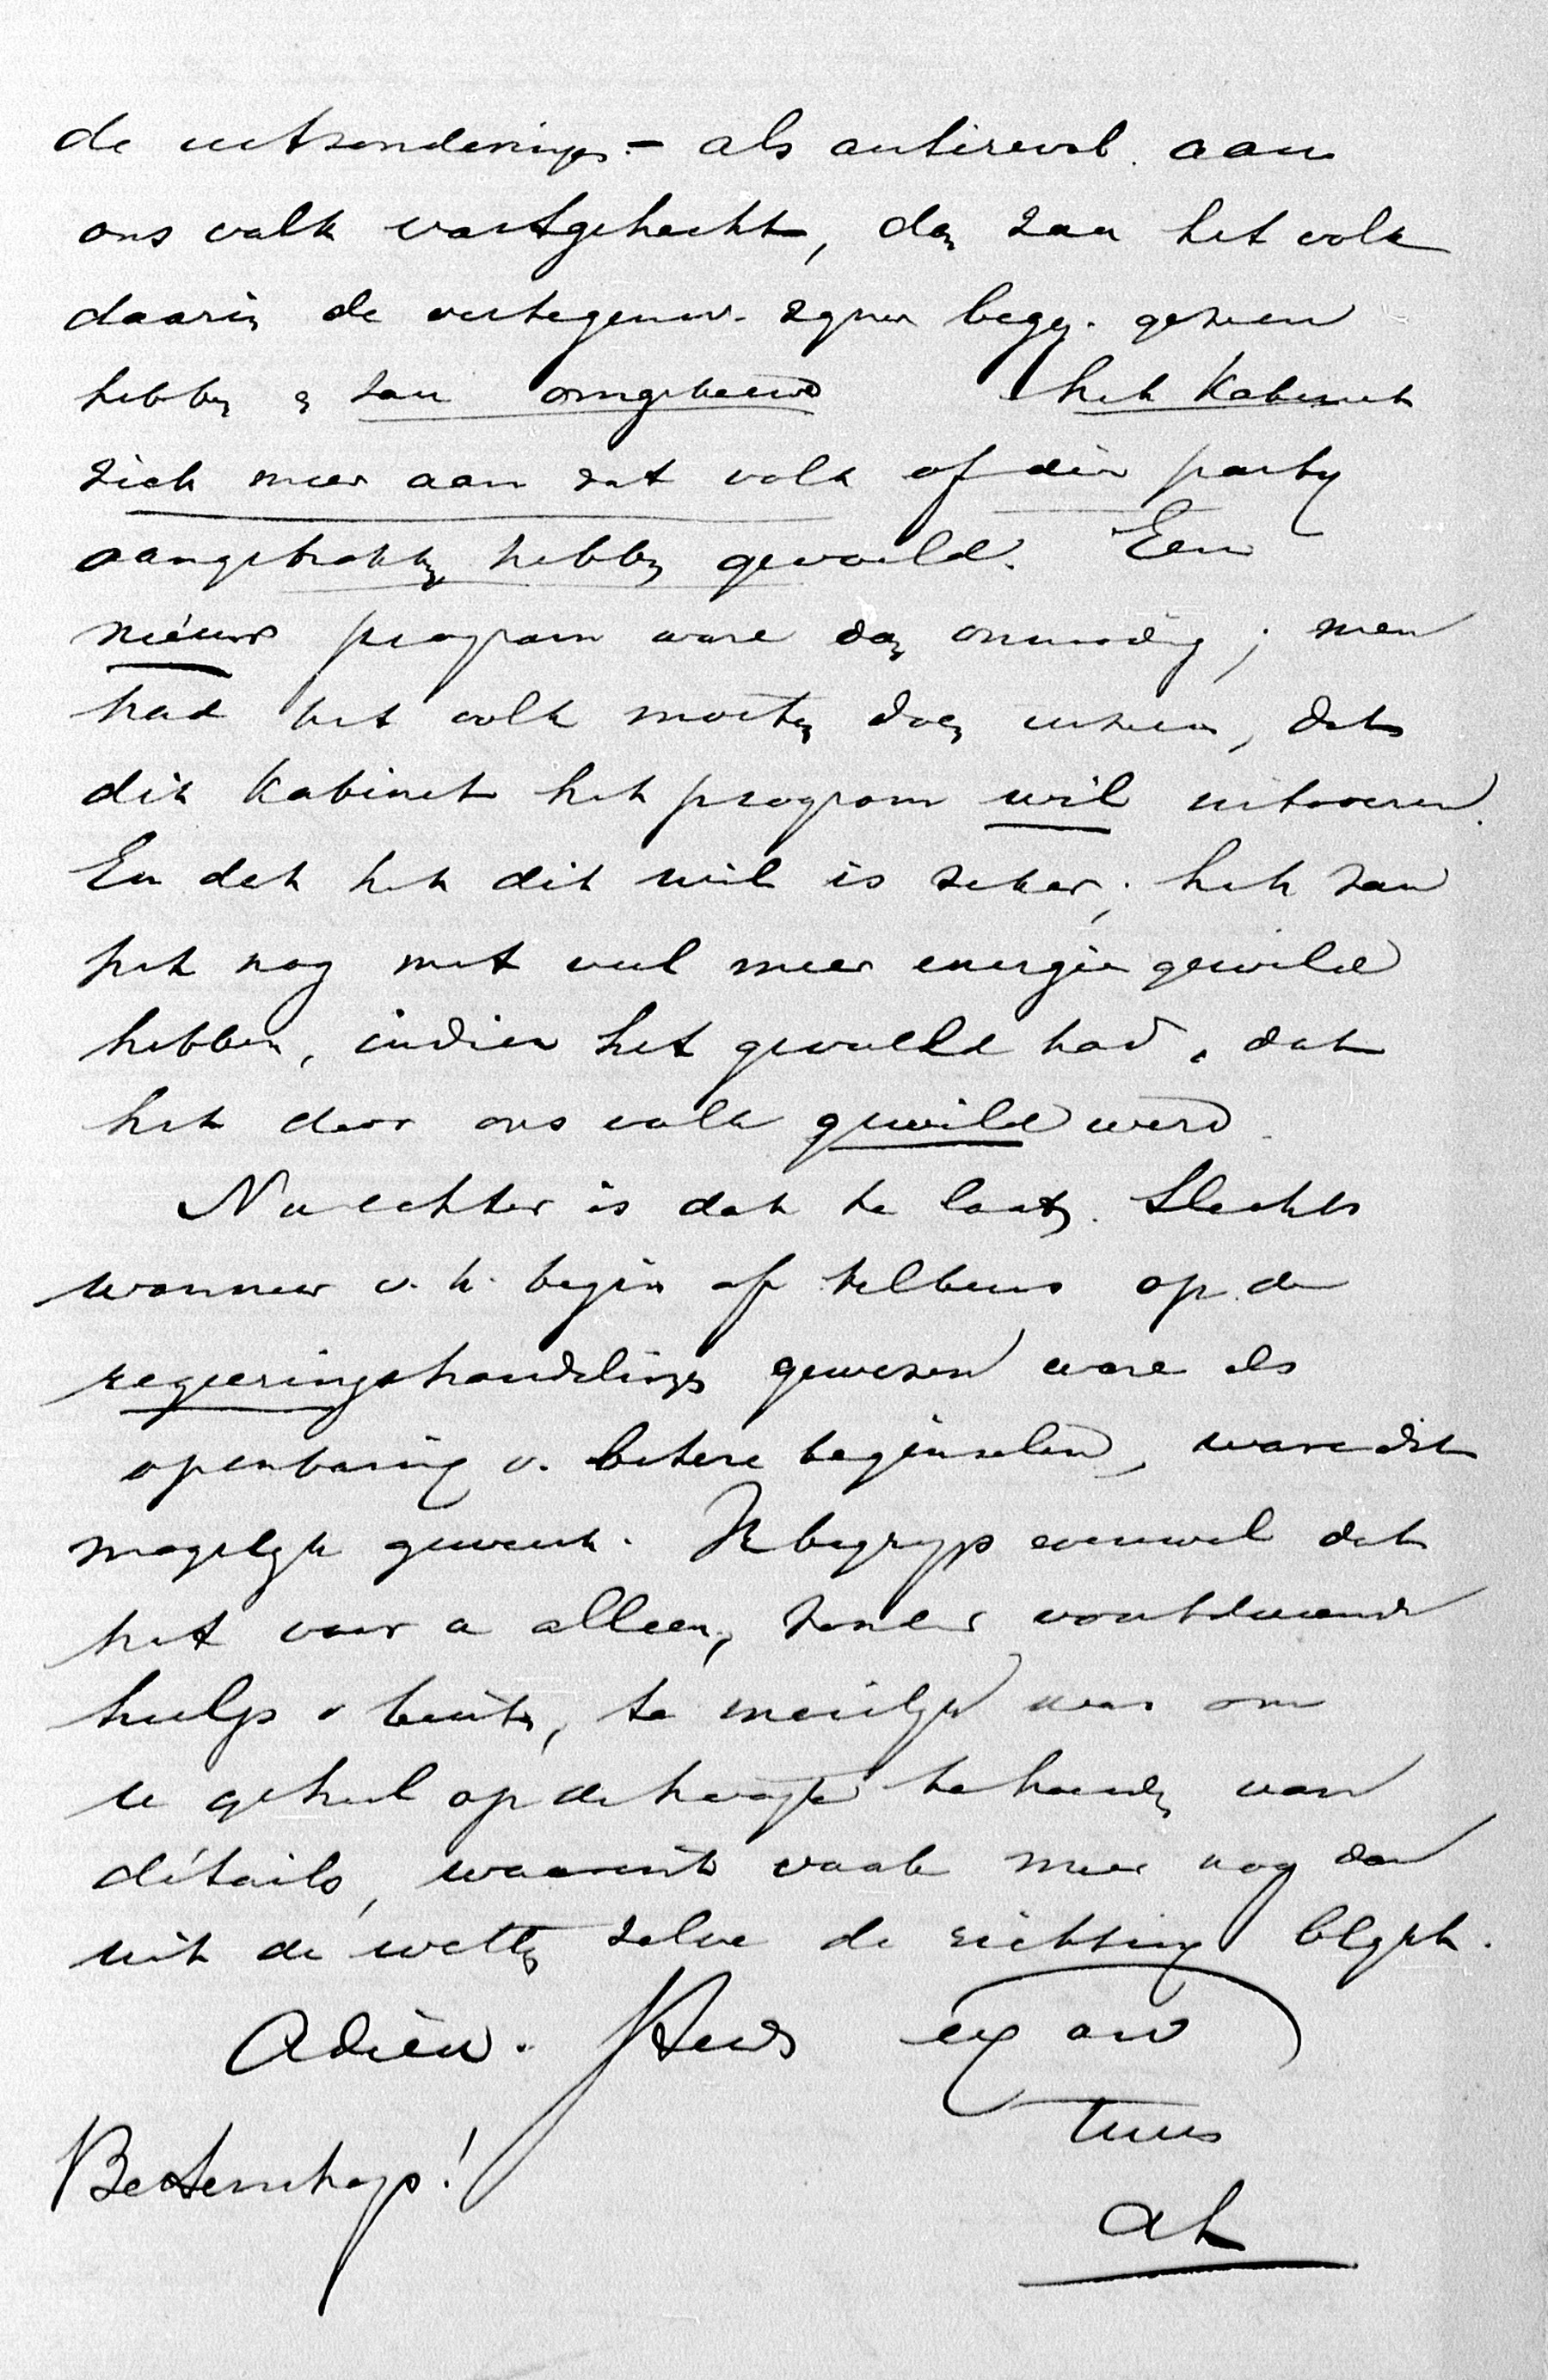 de uitzonderingen - als antirevol. aan
ons volk vastgehecht, dan zou het volk
daarin de vertegenw. zyner beg. gezien
hebben en zou omgekeerd het Kabinet
zich meer aan dat volk of die party
aangetrokken hebben gevoeld. Een
nieuw program ware dan onnoodig; men
had het volk moeten doen inzien, dat
dit Kabinet het program wil uitvoeren.
En dat het dit wil is zeker; het zou
het nog met veel meer energie gewild
hebben, indien het gevoeld had, dat
het door ons volk gewild werd.
Nu echter is dat te laat. Slechts
wanneer v. h. begin af telkens op de
regeeringshandelingen gewezen ware als
openbaring v. betere beginselen, ware dit
mogelyk geweest. Ik begryp evenwel dat
het voor u alleen, zonder voortdurende
hulp v buiten, te moeilyk was om
u geheel op de hoogte te houden van
détails, waaruit vaak meer nog dan
uit de wetten zelve de richting blykt.
Adieu. Steeds ex an⁠o
tuus
AK
Beterschap!